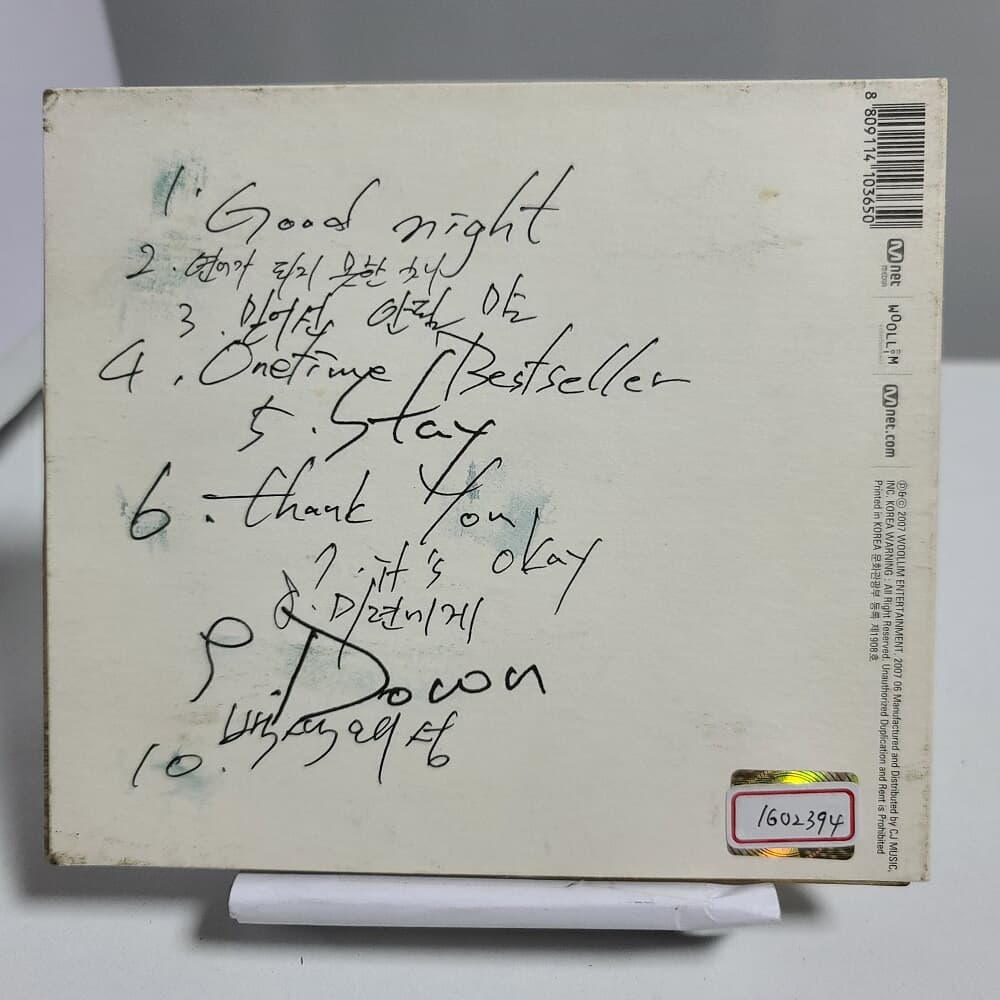 1. Good night
2. 연어가 되지 못한 채
3. 믿어선 안될 말
4. Onetime Bestseller
5. Stay
6. thank You,
7. it's okay
8. 미련에게
9. Down
10. 백색왜성
8 809114 103650
Mnet
MEDIA
WOOLLIM
Mnet.com
℗&© 2007 WOOLLIM ENTERTAINMENT. 2007 06 Manufactured and Distributed by CJ MUSIC,
INC. KOREA WARNING : All Right Reserved. Unauthorized Duplication and Rent is Prohibited
Printed in KOREA 문화관광부 등록 제1908호
1602394